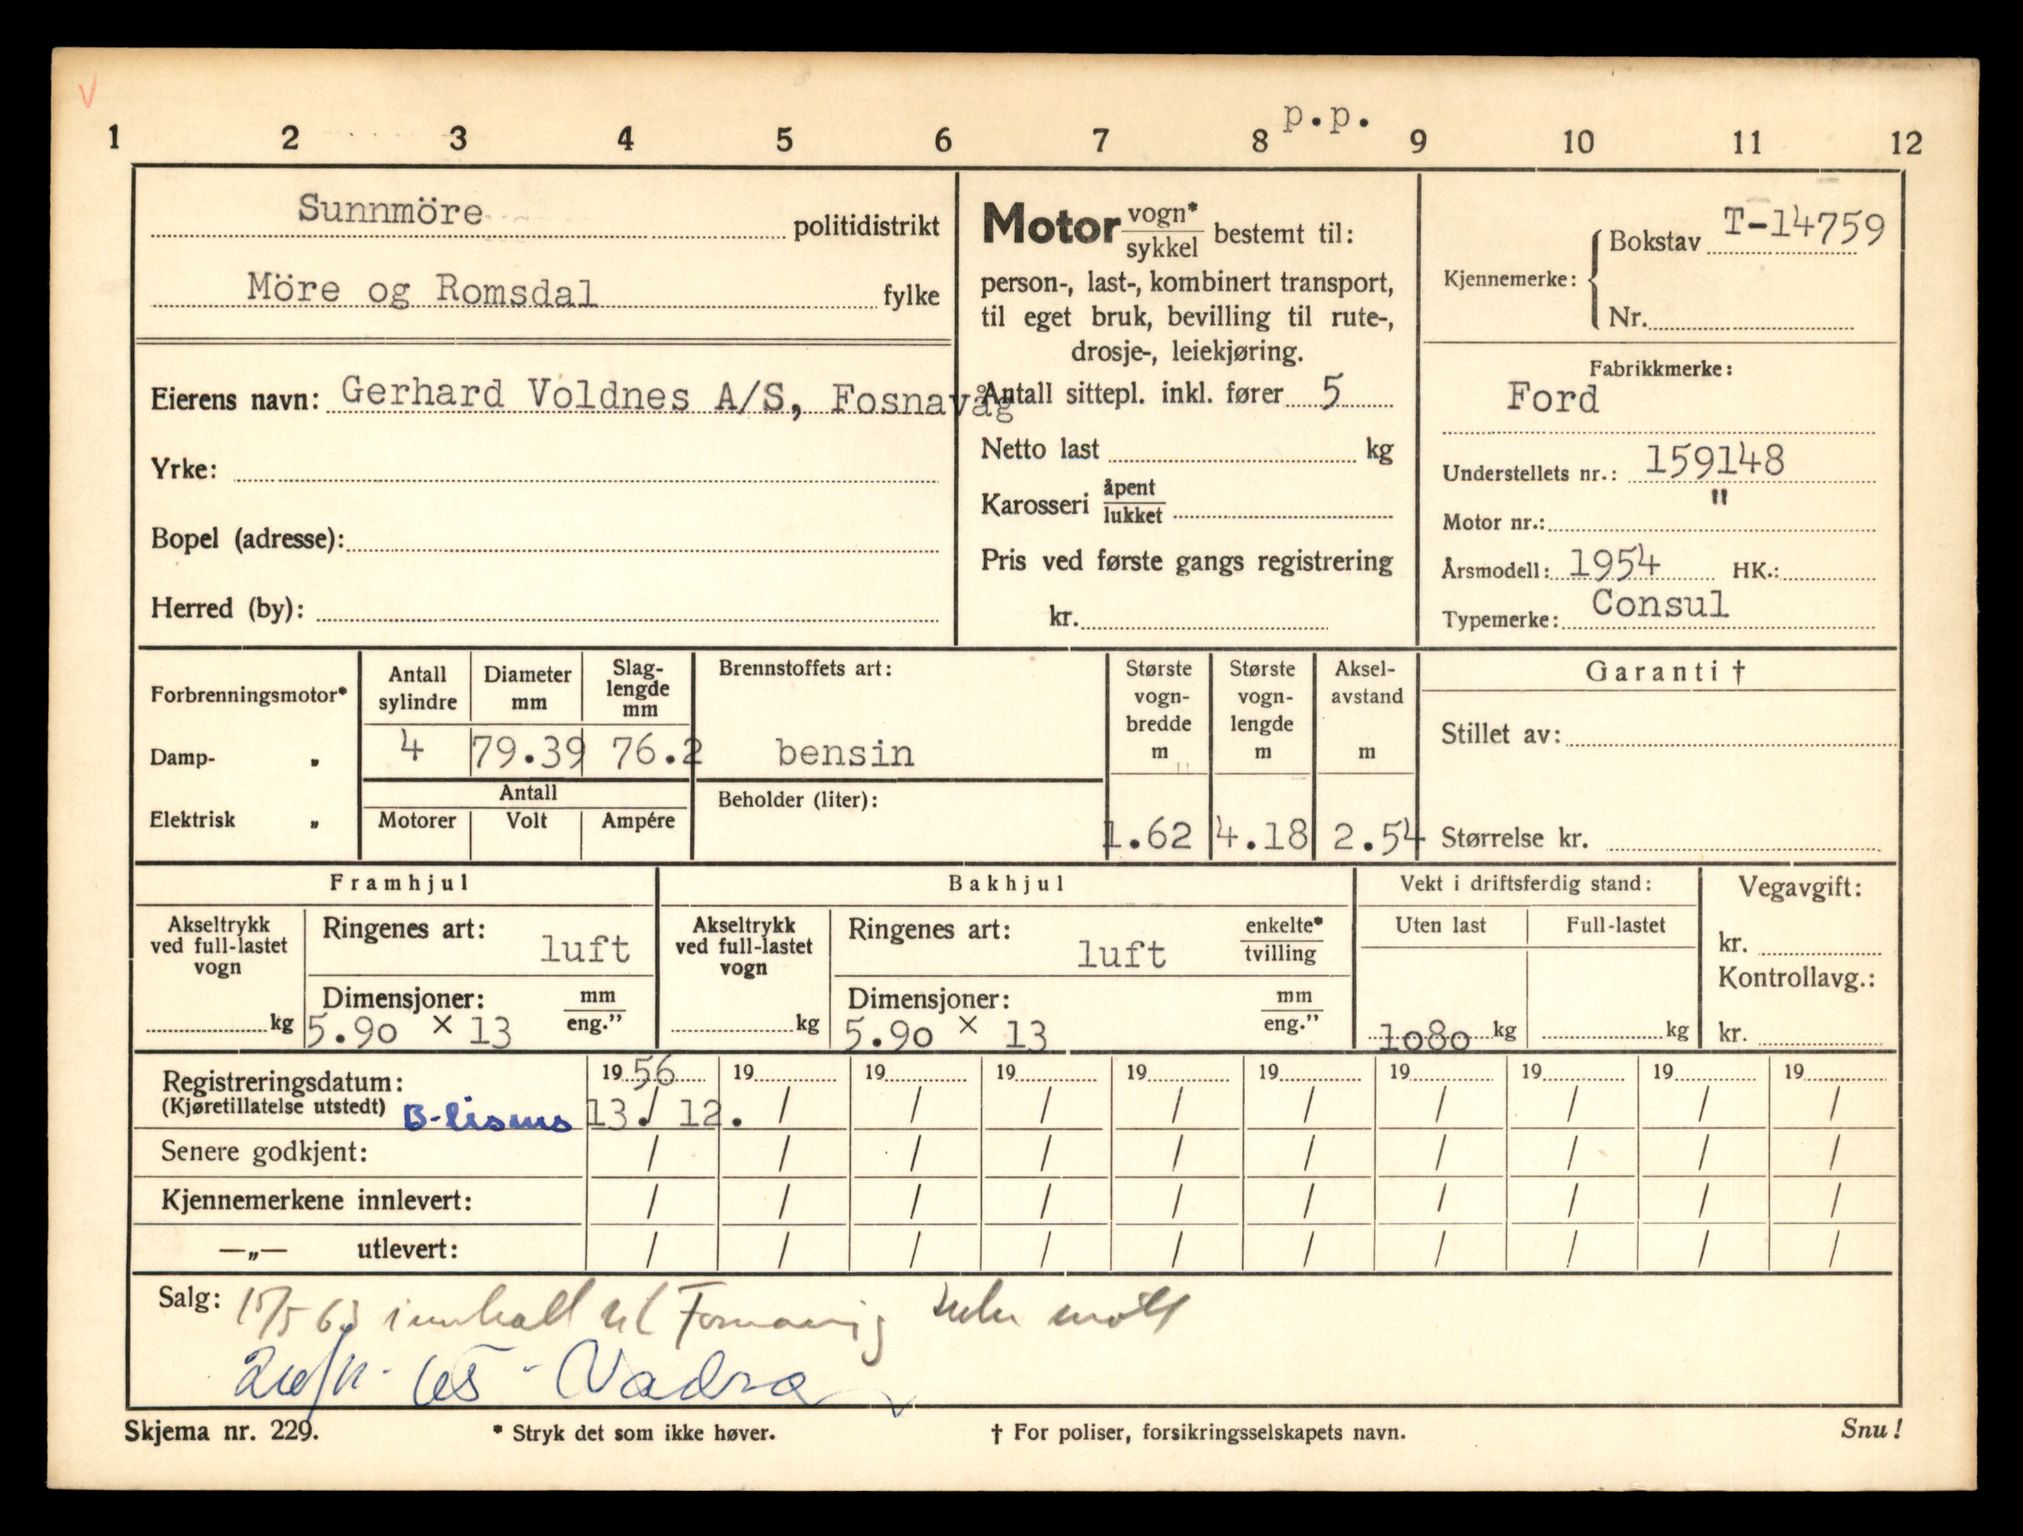 V
p.p.
1 2 3 4 5 6 7 8 9 10 11 12
Sunnmöre politidistrikt
Möre og Romsdal fylke
Eierens navn: Gerhard Voldnes A/S, Fosnavåg
Yrke:
Bopel (adresse):
Herred (by):
Motor vogn* / sykkel bestemt til:
person-, last-, kombinert transport,
til eget bruk, bevilling til rute-,
drosje-, leiekjøring.
Antall sittepl. inkl. fører 5
Netto last kg
Karosseri åpent / lukket
Pris ved første gangs registrering
kr.
Kjennemerke: Bokstav T-14759
Nr.
Fabrikkmerke:
Ford
Understellets nr.: 159148
Motor nr.: "
Årsmodell: 1954 HK.:
Typemerke: Consul
Forbrenningsmotor*
Damp- „
Elektrisk „
Antall sylindre
4
Diameter mm
79.39
Slag-
lengde
mm
76.2
Antall
Motorer Volt Ampére
Brennstoffets art:
bensin
Beholder (liter):
Største
vogn-
bredde
m
1.62
Største
vogn-
lengde
m
4.18
Aksel-
avstand
m
2.54
Garanti †
Stillet av:
Størrelse kr.
Framhjul
Akseltrykk
ved full-lastet
vogn
kg
Ringenes art:
luft
Dimensjoner: mm / eng."
5.90 × 13
Bakhjul
Akseltrykk
ved full-lastet
vogn
kg
Ringenes art: enkelte* / tvilling
luft
Dimensjoner: mm / eng."
5.90 × 13
Vekt i driftsferdig stand:
Uten last Full-lastet
1080 kg kg
Vegavgift:
kr.
Kontrollavg.:
kr.
Registreringsdatum: 19 56 19 19 19 19 19 19 19 19 19
(Kjøretillatelse utstedt) B-lisens 13. / 12. / / / / / / / / /
Senere godkjent: / / / / / / / / / /
Kjennemerkene innlevert: / / / / / / / / / /
—„— utlevert: / / / / / / / / / /
Salg: 15/5 63 innkalt til
65 - Vadra
Skjema nr. 229. * Stryk det som ikke høver. † For poliser, forsikringsselskapets navn. Snu!